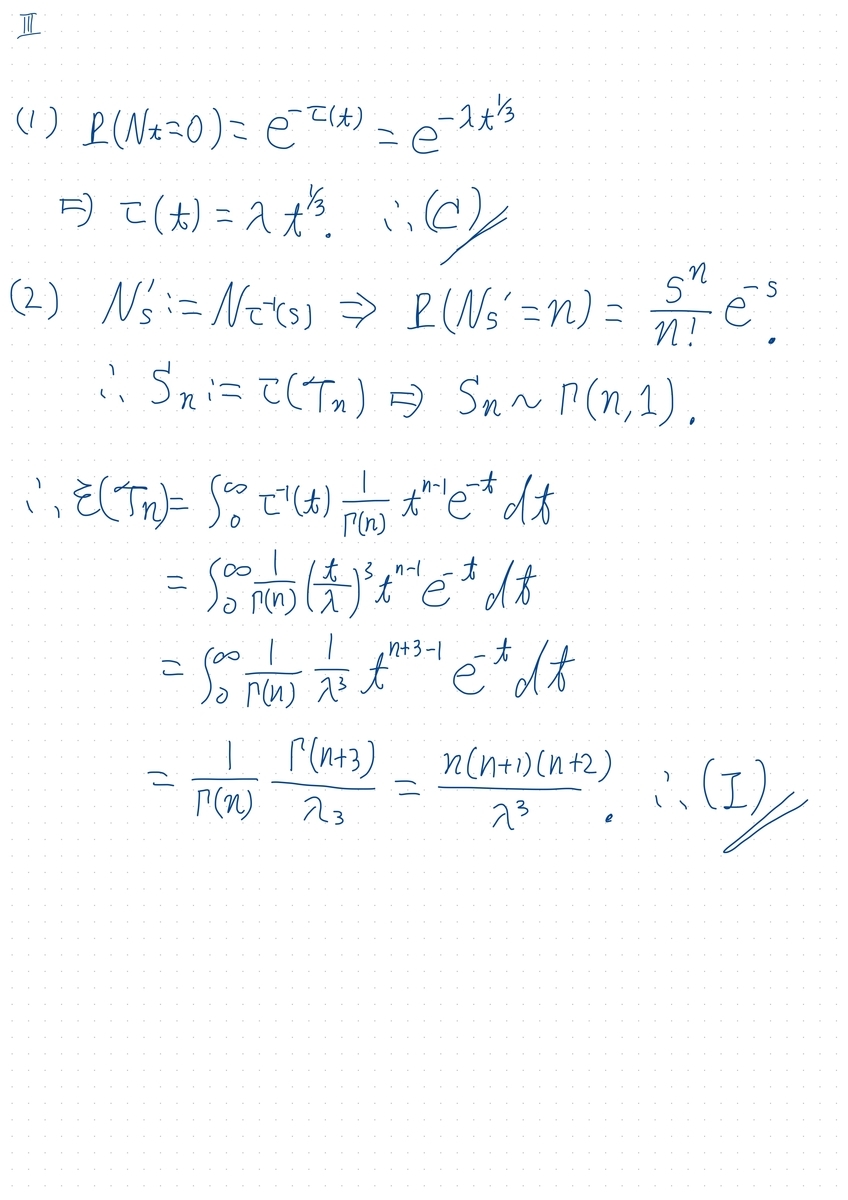 III
(1) P(Nt=0) = e^{-τ(t)} = e^{-λt^{1/3}}
⇒ τ(t) = λ t^{1/3}. ∴ (C)
(2) N's := N_{τ^{-1}(s)} ⇒ P(Ns'=n) = \frac{s^n}{n!} e^{-s}.
∴ Sn := τ(Tn) ⇒ Sn ~ Γ(n,1).
∴ E(Tn) = ∫_0^∞ τ^{-1}(t) \frac{1}{Γ(n)} t^{n-1} e^{-t} dt
= ∫_0^∞ \frac{1}{Γ(n)} (\frac{t}{λ})^3 t^{n-1} e^{-t} dt
= ∫_0^∞ \frac{1}{Γ(n)} \frac{1}{λ^3} t^{n+3-1} e^{-t} dt
= \frac{1}{Γ(n)} \frac{Γ(n+3)}{λ_3} = \frac{n(n+1)(n+2)}{λ^3}. ∴ (I)